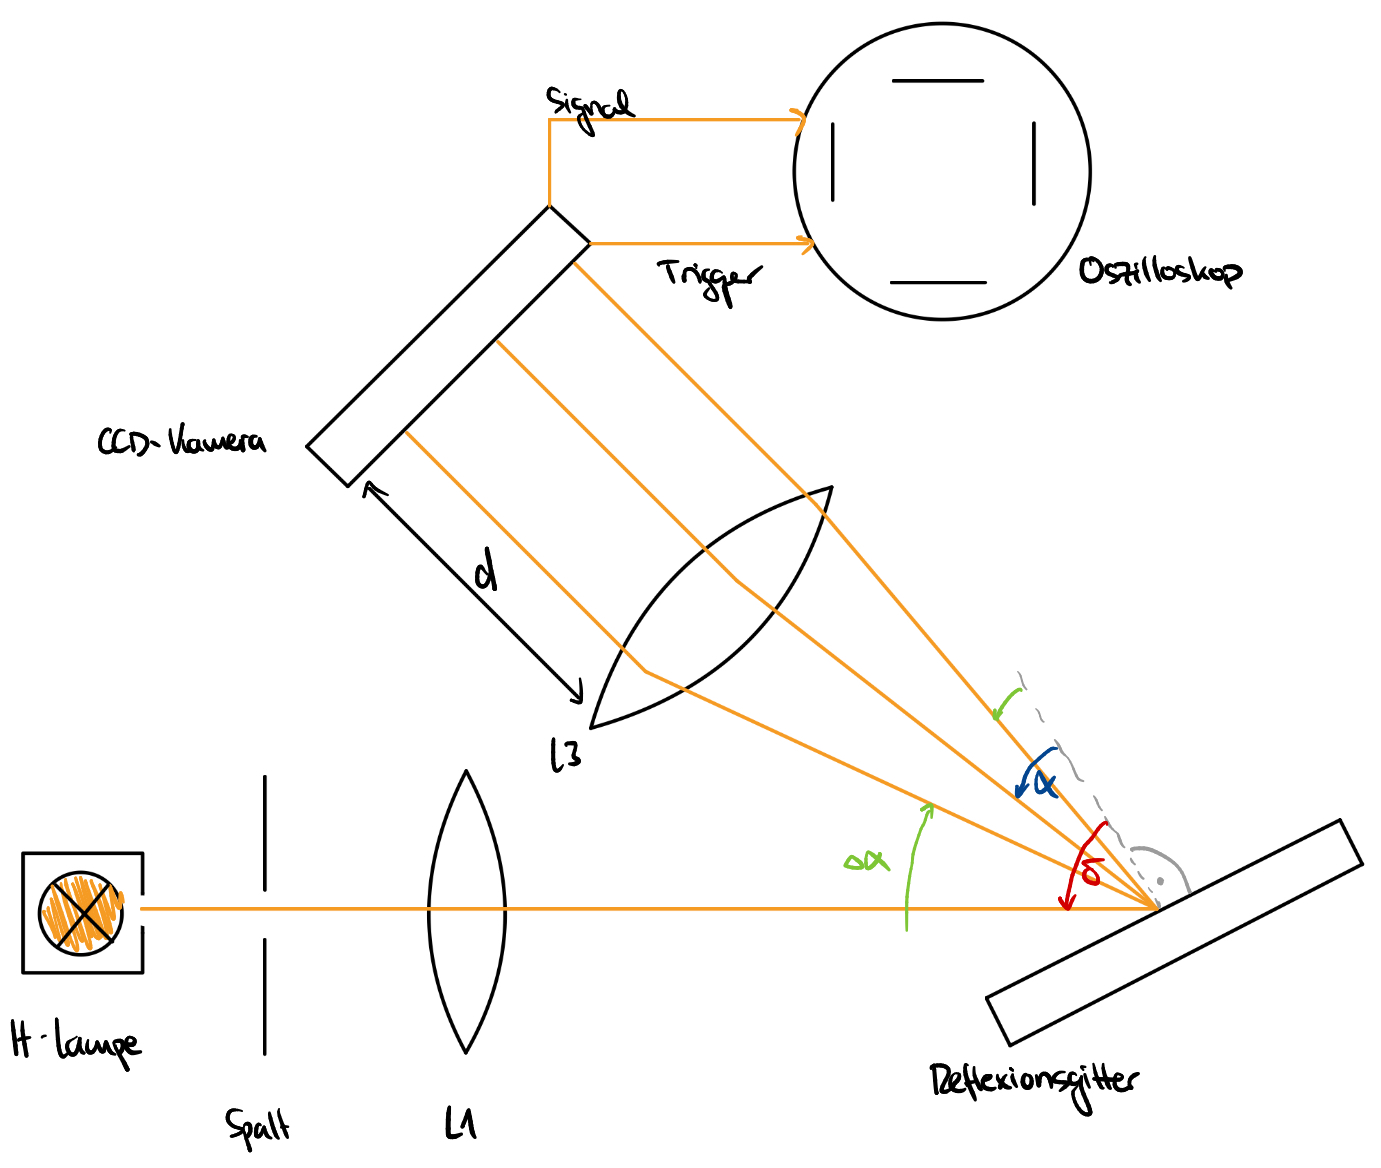 Signal
Trigger
Oszilloskop
CCD-Kamera
d
L3
α
δ
Δα
H-Lampe
Spalt
L1
Reflexionsgitter